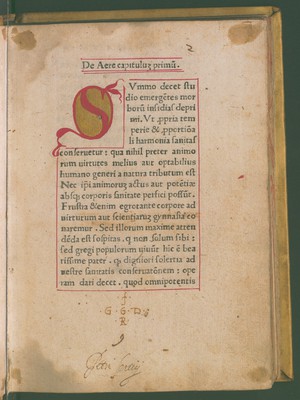 2
De Aere capituluȝ primũ.
SVmmo decet stu
dio emergẽtes mor
borũ insidias depri
mi. Vt ꝓpria tem
perie & ꝓportiõa
li harmonia sanitas
conseruetur: qua nihil preter animo
rum uirtutes melius aut optabilius
humano generi a natura tributum est
Nec ip̃i animorũ actus aut potẽtiæ
absqȝ corporis sanitate perfici possũt.
Frustra & enim egrotante corpore ad
uirtutum aut scientiarũ gymnasia co
naremur. Sed illorum maxime atten
dẽda est sospitas. q̃ non solum sibi:
sed gregi populorum uiuũt hic ẽ bea
tissime pater. q̃ digniori solertia ad
uestre sanitatis conseruatõnem: ope
ram dari decet. quod omnipotentis